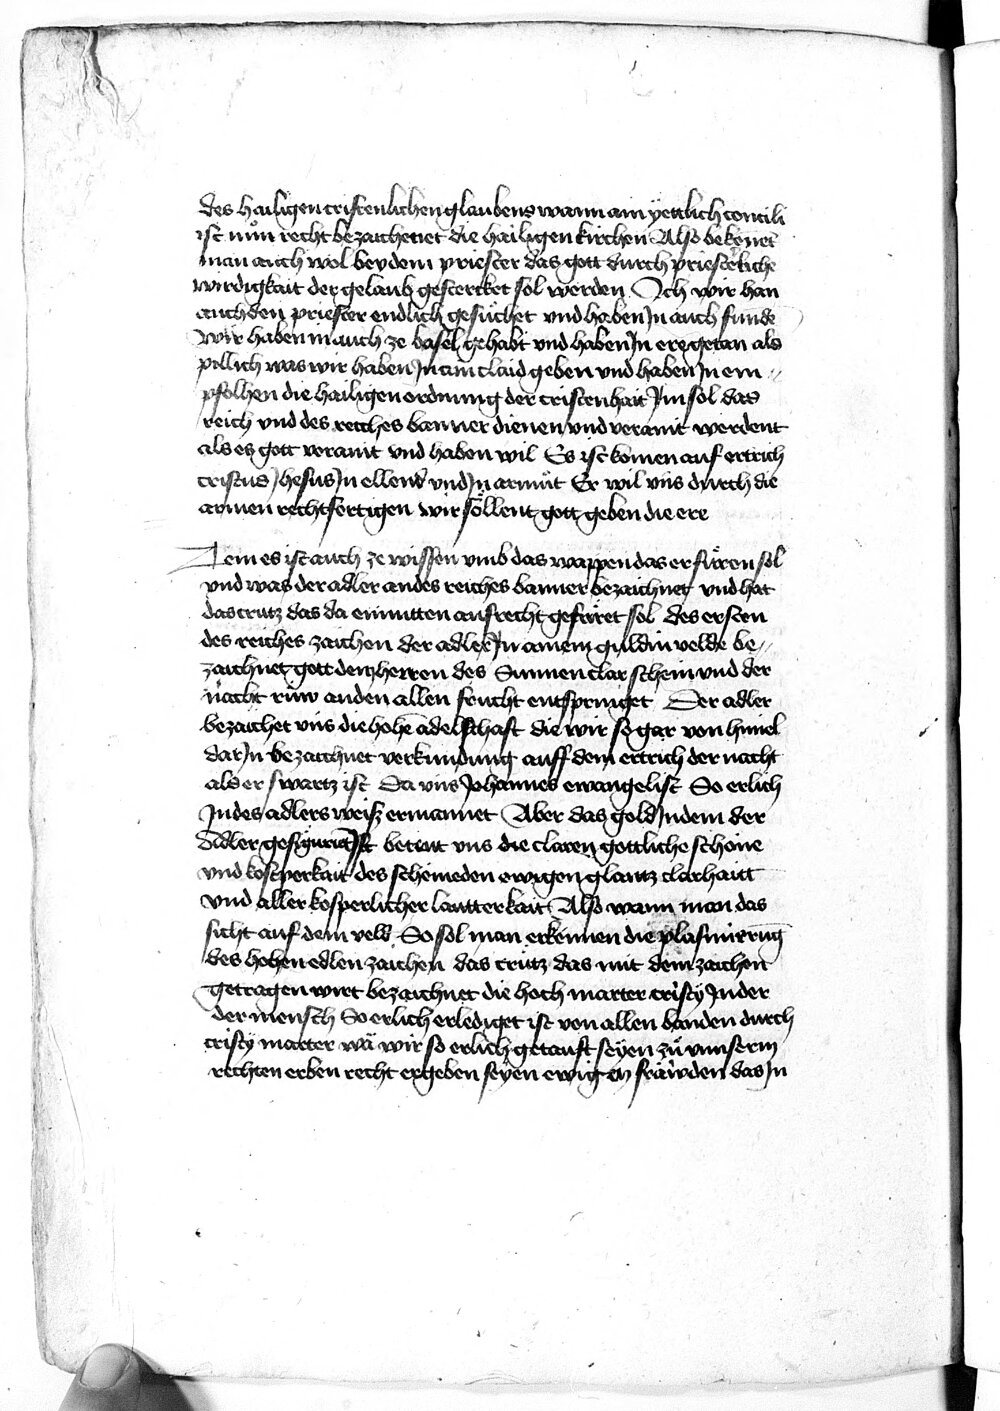 des hailigen cristenlichen glaubens wann ain yettlich concili
ist nůn recht bezaichenet die hailigen kirchen Also bekennet
man auch wol bey dem priester das gott durch priesterliche
wirdigkait der gelaub gestercket sol werden Ach wir han
auch den priester endlich gesůchet vnd haben Jn auch funde
Wir haben in auch ze basel gehabt vnd haben Jn ere getan als
pillich was wir haben Jm ain claid geben vnd haben Jn em
pfolhen die hailigen ordnung der cristenhait Jm sol das
reich vnd des reiches banner dienen vnd veraint werdent
als es gott veraint vnd haben wil Es ist komen auf ertrich
cristus Jhesus Jn ellend vnd Jn armůt Er wil vns durch die
armen rechtfertigen wir söllent gott geben die ere
Jtem es ist auch ze wissen vmb das wappen das er füren sol
vnd was der adler an des reiches banner bezaichnet vnd hat
das crütz das da enmitten aufrecht gefüret sol des ersten
des reiches zaichen der adler Jn ainem guldin velde be
zaichnet gott den herren des Sunnen clar schein vnd der
nacht růw an den allen frucht entspringet Der adler
bezaichet vns die hohe adelschaft die wir so gar von himel
dar Jn bezaichnet verkundung auff dem ertrich der nacht
als er swartz ist Da vns Johannes ewangelist So erlich
Jn des adlers weisz ermannet Aber das gold Jn dem der
Adler gefiguriert Jst beteut vns die claren gottliche schöne
vnd kostperkait des scheineden ewigen glantz clarhaitt
vnd aller kosperlicher lautterkait Also wann man das
sicht auf dem veld So sol man erkennen die plasmirrung
des hohen edlen zaichen das crütz das mit dem zaichen
getragen wirt bezaichnet die hoch marter cristy Jn der
der mensch So erlich erlediget ist von allen banden durch
cristy marter wā wir so erlich getauft seyen zů vnnserm
rechten erben recht ergeben seyen ewigen fräwden das Jn